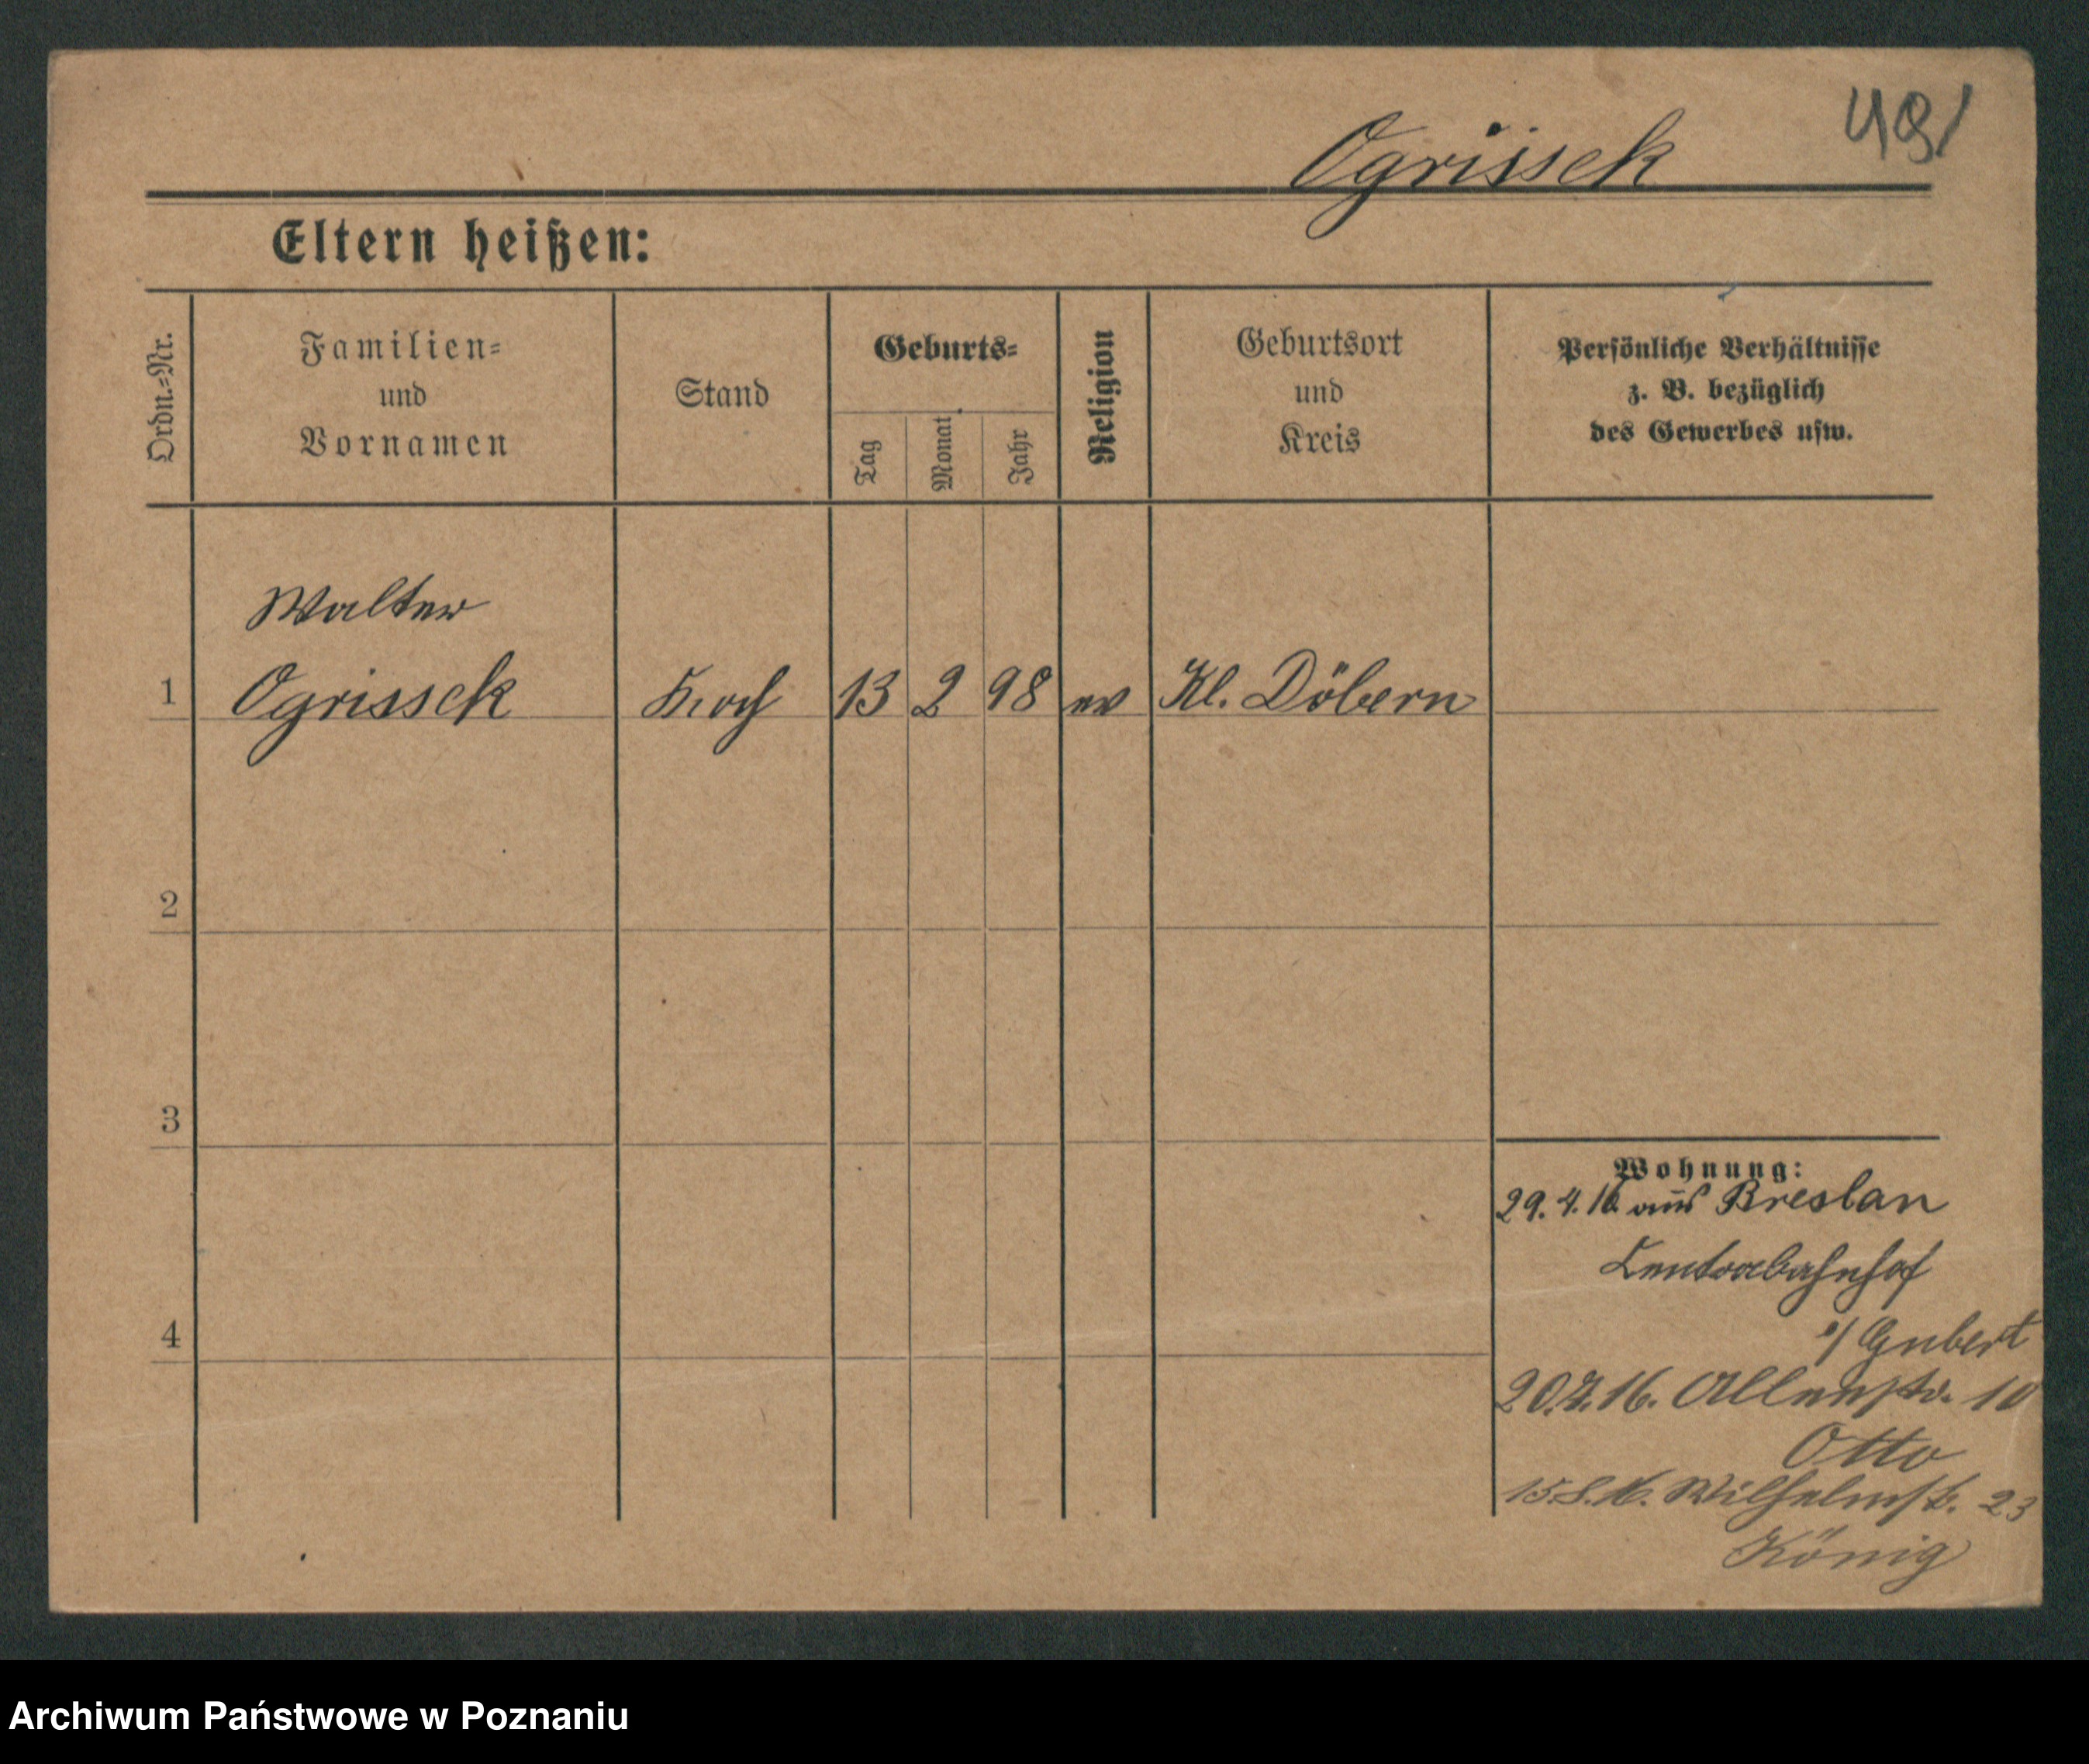 491
Ogrissek
Eltern heißen:
Ordn.-Nr.
Familien-
und
Vornamen
Stand
Geburts-
Tag
Monat
Jahr
Religion
Geburtsort
und
Kreis
Persönliche Verhältnisse
z. B. bezüglich
des Gewerbes usw.
Walter
1 Ogrissek Koch 13 2 98 ev Kl. Döbern
2
3
4
Wohnung:
29. 4. 16 aus Breslau
Centralbahnhof
Gubert
20.7.16. 10
Otto
15.8.16. Wilhelmstr. 23
König
Archiwum Państwowe w Poznaniu